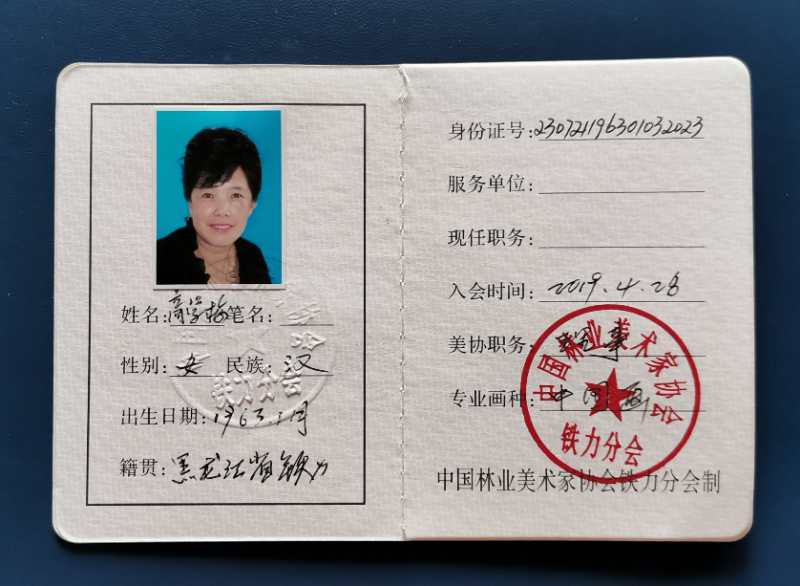 姓名:高学梅笔名:
性别:女 民族:汉
出生日期:1963.1月
籍贯:黑龙江省铁力
身份证号:230721196301032023
服务单位:
现任职务:
入会时间:2019.4.28
美协职务:理事
专业画种:中国画
中国林业美术家协会
铁力分会
中国林业美术家协会铁力分会制